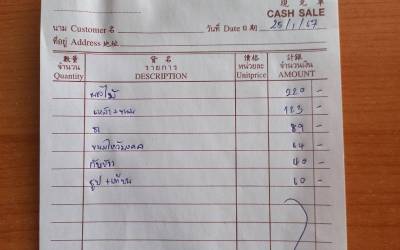 現 兑 單
CASH SALE
นาม Customer 名 วันที่ Date 日期 25/1/67
ที่อยู่ Address 地址
數量 貨名 價格 計銀
จำนวน รายการ หน่วยละ จำนวนเงิน
Quantity DESCRIPTION Unitprice AMOUNT
ผลไม้ 220 -
เหล้า+ขนม 123 -
ชา 89 -
ขนมไหว้มงคล 64 -
กับข้าว 40 -
ธูป+เทียน 60 -